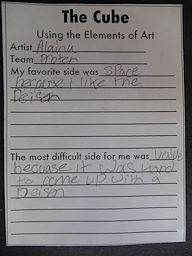 The Cube
Using the Elements of Art
Artist Alaina
Team
My favorite side was space
because I like the
Deisen
The most difficult side for me was value
because it was hard
to come up with a
Deison